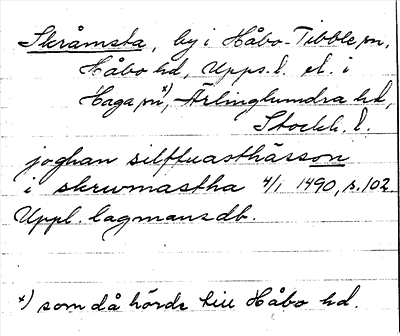 Skråmsta, by i Håbo-Tibble sn,
Håbo hd, Upps. l. el. i
Haga sn x), Ärlinghundra hd,
Stockh. l.
joghan silffuasthässon
i skrwmastha 4/1 1490, s. 102
Uppl. lagmansdb.
x) som då hörde till Håbo hd.